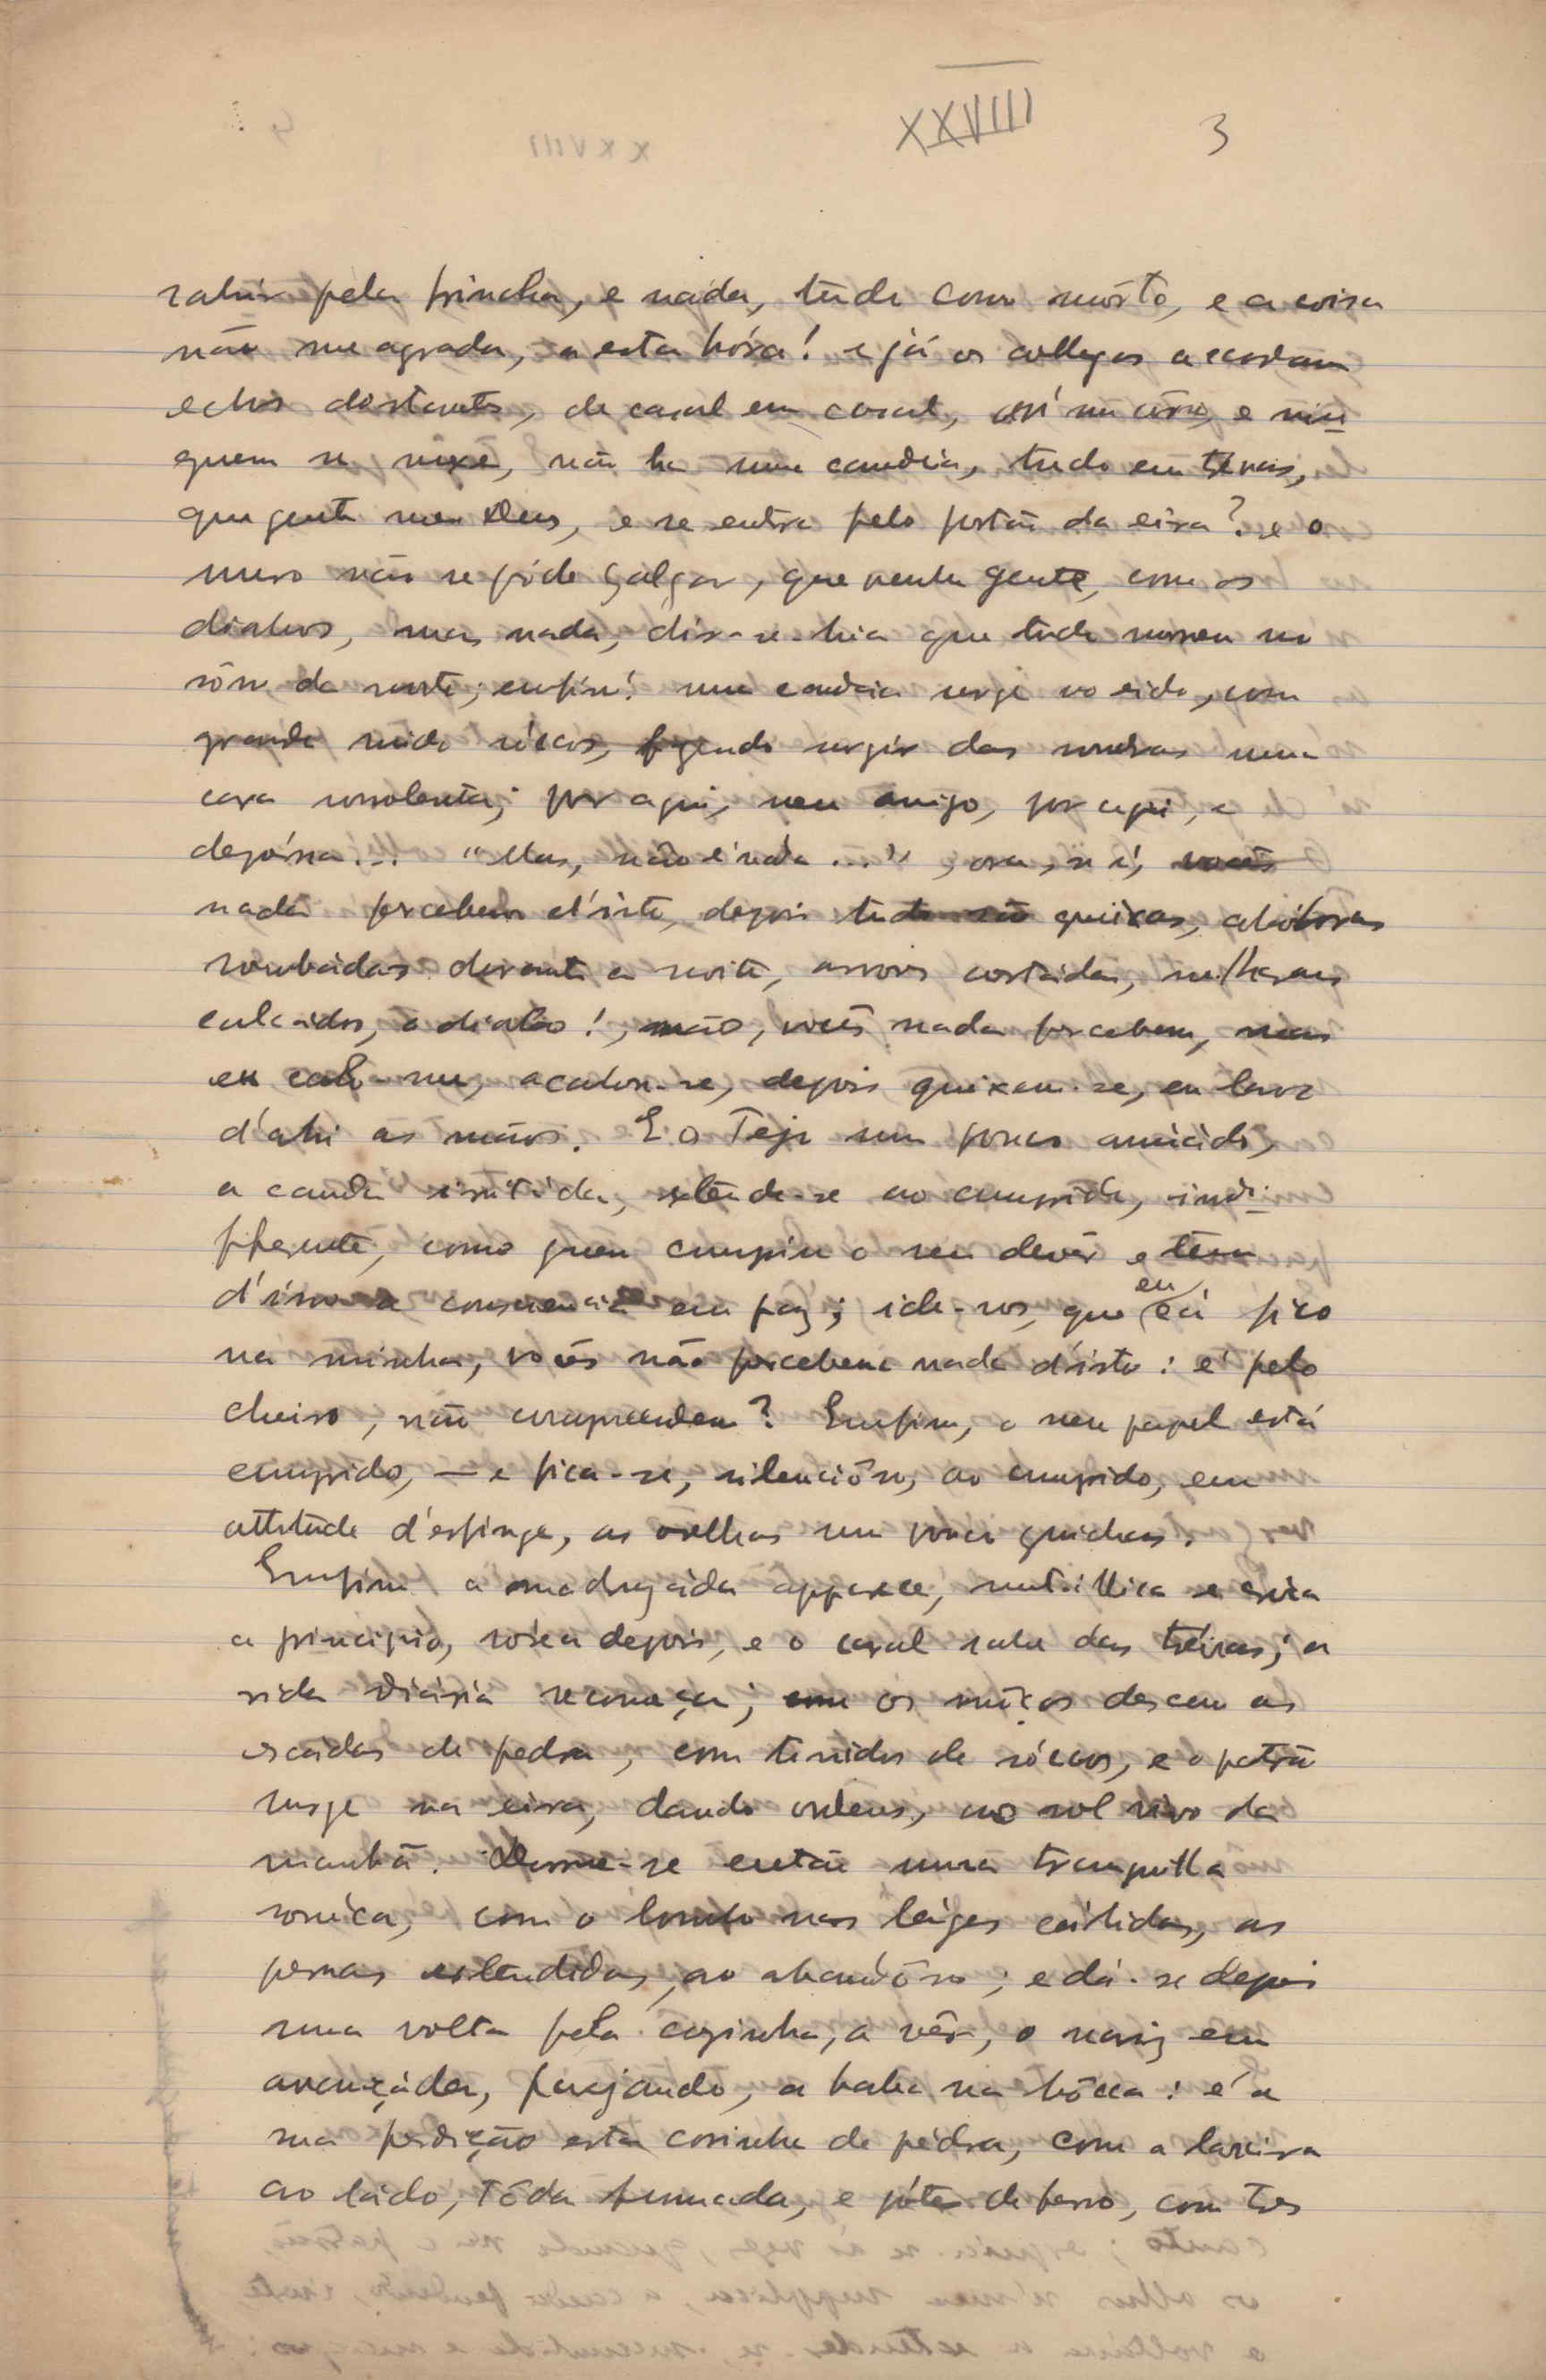 XXVIII 3
sahir pela frincha, e náda, tudo como môrto, e a coisa
não me agrada, a esta hóra! e já os collegas acordam
echos distantes, de casal em casal, até ao cimo, e nin
guem se mexe, não ha uma candeia, tudo em trévas,
que gente meu Deus, e se entra pelo portão da eira? e o
muro não se póde galgar, que venha gente, com os
diabos, mas nada, dir-se-hia que tudo morreu no
sôno da morte; emfim! uma candeia surge no eido, com
grande ruido sóccos, fazendo surgir das sombras uma
cara somnolenta; por aqui, meu amigo, por aqui, e
depréssa... "Mas, não é nada...", ora, se é, vocês
nada percebem d'isto, depois tudo são queixas, abóboras
roubadas durante a noite, arvores cortadas, milharaes
calcados, o diabo!, não, vocês nada percebem, mas
eu calo-me, acabou-se, depois queixem-se, eu lavo
d'ahi as mãos. E o Tejo um pouco amuádo,
a cauda encolhida, estende-se ao comprido, indi-
fferente, como quem cumpriu o seu devêr e tem
d'isso a consciencia em paz; ide-vos, que eu cá fico
na minha, vocês não percebem nada d'isto: é pelo
cheiro, não comprendem? Emfim, o meu papel está
cumprido, — e fica-se, silenciôso, ao comprido, em
attitude d'esfinge, as orelhas um pouco guichas.
Emfim a madrugáda apparece, metallica e
a principio, rósea depois, e o casal sahe das trévas; a
vida diaria recomeça; os môços descem as
escádas de pedra, com tinidos de sóccos, e o patrão
surge na eira, dando ordens, ao sol vivo da
manhã. Dorme-se então numa tranquilla
sonéca, com o lombo nas láges cálidas, as
pernas estendidas, ao abandôno; e dá-se depois
uma volta pela cozinha, a vêr, o nariz em
avançáda, farejando, a baba na bôcca: é a
sua perdição esta cosinha de pédra, com a lareira
ao ládo, tôda fumada, e póte de ferro, com tres